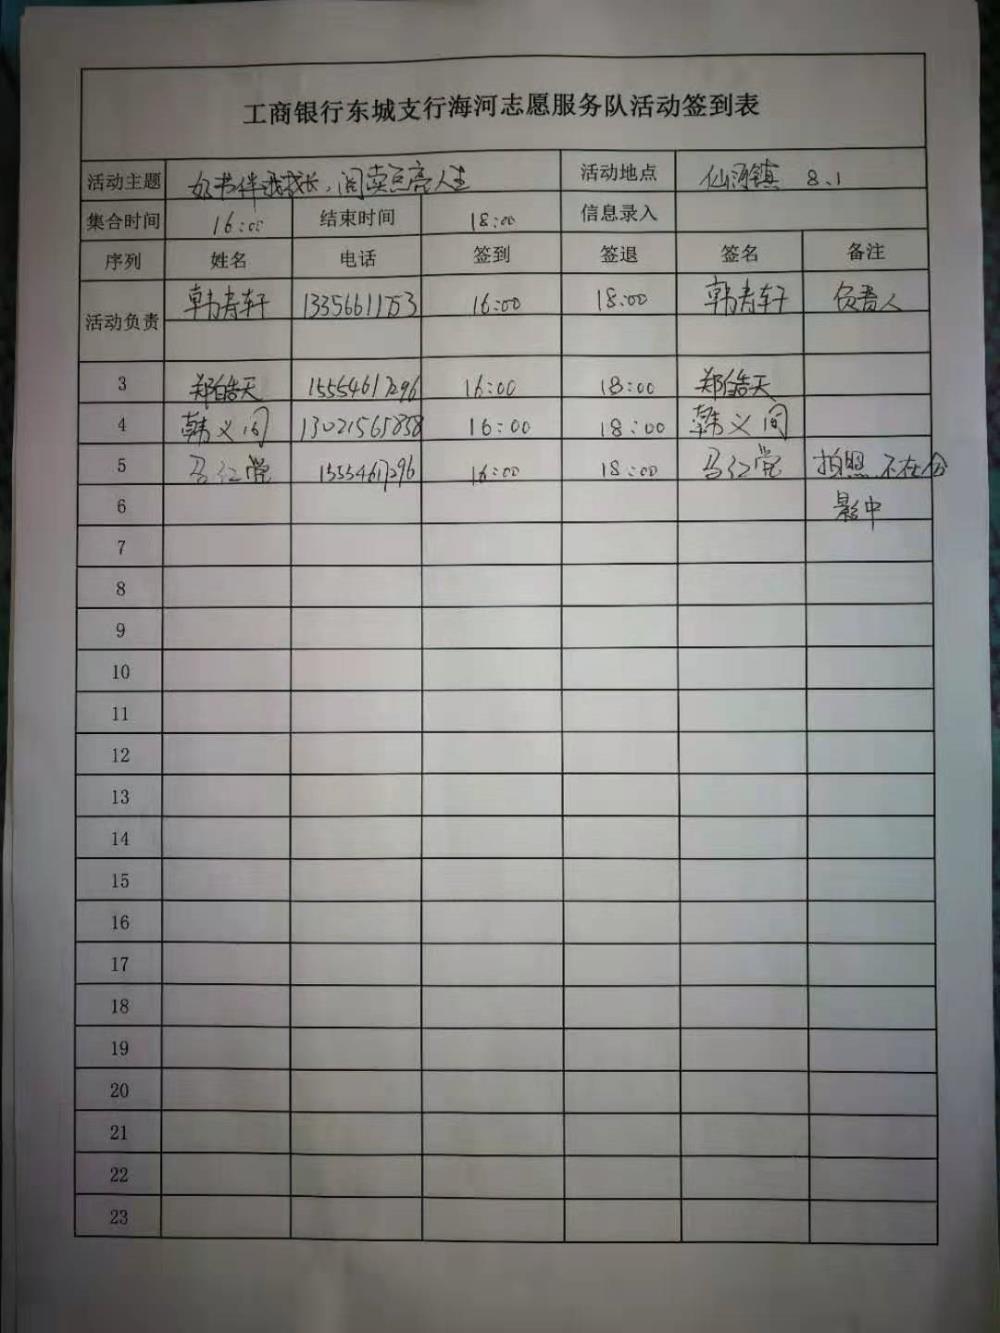 工商银行东城支行海河志愿服务队活动签到表
活动主题 好书伴我成长，阅读点亮人生 活动地点 仙河镇 8.1
集合时间 16:00 结束时间 18:00 信息录入
序列 姓名 电话 签到 签退 签名 备注
活动负责 韩青轩 16:00 18:00 韩青轩 负责人
3 郑皓天 15554617296 16:00 18:00 郑皓天
4 韩义闾 13021565858 16:00 18:00 韩义闾
5 马红莹 15554617296 16:00 18:00 马红莹 拍照 不在合
6 影中
7
8
9
10
11
12
13
14
15
16
17
18
19
20
21
22
23